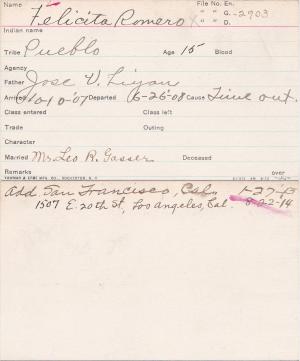 Name Felicita Romero File No. En.
" " G. -2903
" " D.
Indian name
Tribe Pueblo Age 15 Blood
Agency
Father Jose V. Liyan
Arrived 10-10-07 Departed 6-26-08 Cause Time out.
Class entered Class left
Trade Outing
Character
Married Mr. Leo R. Gasser Deceased
Remarks over
YAWMAN & ERBE MFG. CO., ROCHESTER, N. Y.
Add San Francisco, Cal. 1-27-13
1507 E. 20th St, Los Angeles, Cal. 8-22-14